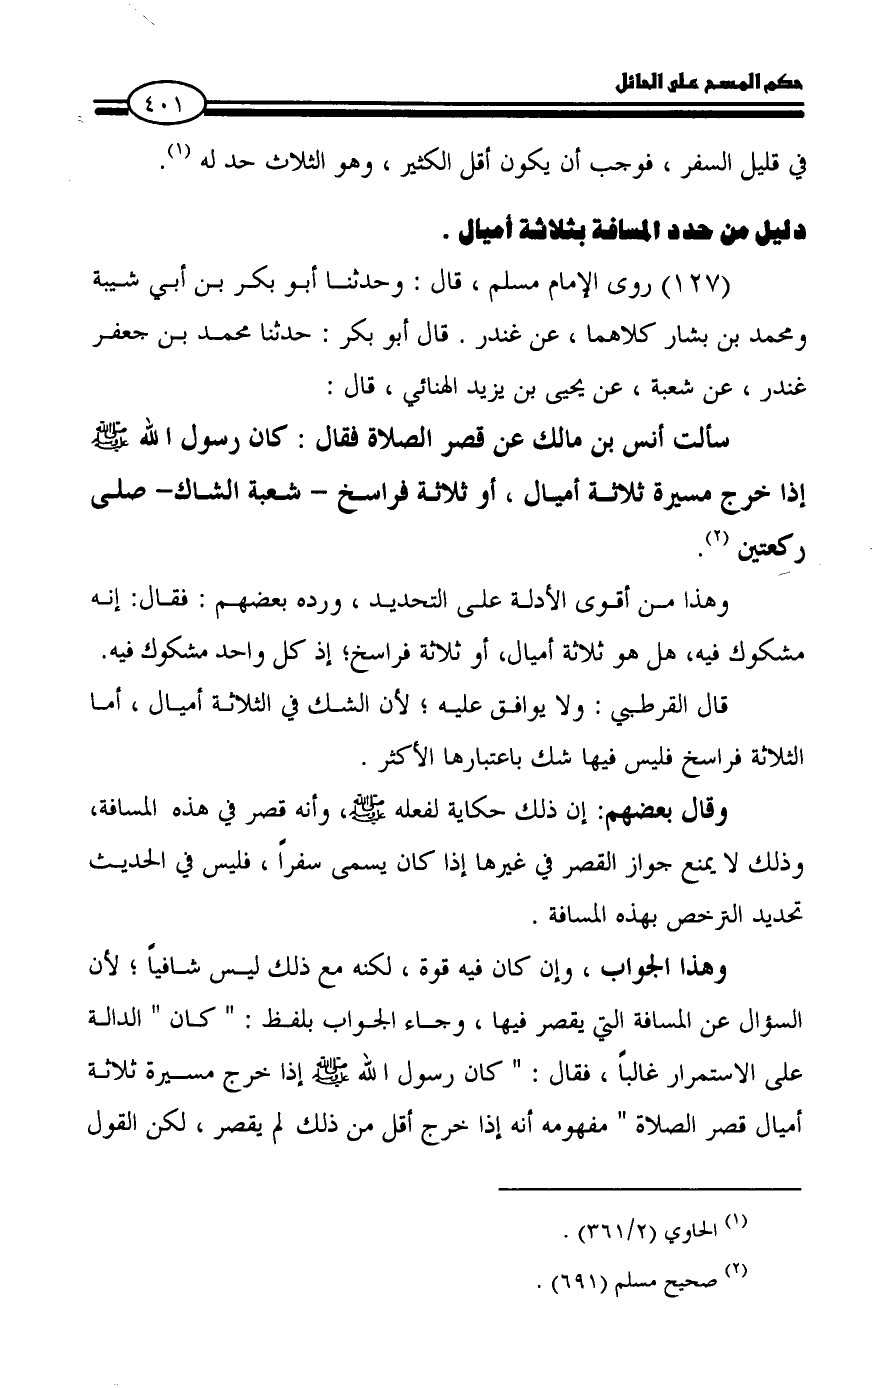 حكم المسح على الحائل
٤٠١
في قليل السفر ، فوجب أن يكون أقل الكثير ، وهو الثلاث حد له (١).
دليل من حدد المسافة بثلاثة أميال .
(١٢٧) روى الإمام مسلم ، قال : وحدثنا أبو بكر بن أبي شيبة
ومحمد بن بشار كلاهما ، عن غندر . قال أبو بكر : حدثنا محمد بن جعفر
غندر ، عن شعبة ، عن يحيى بن يزيد الهنائي ، قال :
سألت أنس بن مالك عن قصر الصلاة فقال : كان رسول الله ﷺ
إذا خرج مسيرة ثلاثة أميال ، أو ثلاثة فراسخ - شعبة الشاك- صلى
ركعتين (٢).
وهذا من أقوى الأدلة على التحديد ، ورده بعضهم : فقال: إنه
مشكوك فيه، هل هو ثلاثة أميال، أو ثلاثة فراسخ؛ إذ كل واحد مشكوك فيه.
قال القرطبي : ولا يوافق عليه ؛ لأن الشك في الثلاثة أميال ، أما
الثلاثة فراسخ فليس فيها شك باعتبارها الأكثر .
وقال بعضهم: إن ذلك حكاية لفعله ﷺ، وأنه قصر في هذه المسافة،
وذلك لا يمنع جواز القصر في غيرها إذا كان يسمى سفراً ، فليس في الحديث
تحديد الترخص بهذه المسافة .
وهذا الجواب ، وإن كان فيه قوة ، لكنه مع ذلك ليس شافياً ؛ لأن
السؤال عن المسافة التي يقصر فيها ، وجاء الجواب بلفظ : " كان " الدالة
على الاستمرار غالباً ، فقال : " كان رسول الله ﷺ إذا خرج مسيرة ثلاثة
أميال قصر الصلاة " مفهومه أنه إذا خرج أقل من ذلك لم يقصر ، لكن القول
(١) الحاوي (٣٦١/٢) .
(٢) صحيح مسلم (٦٩١) .